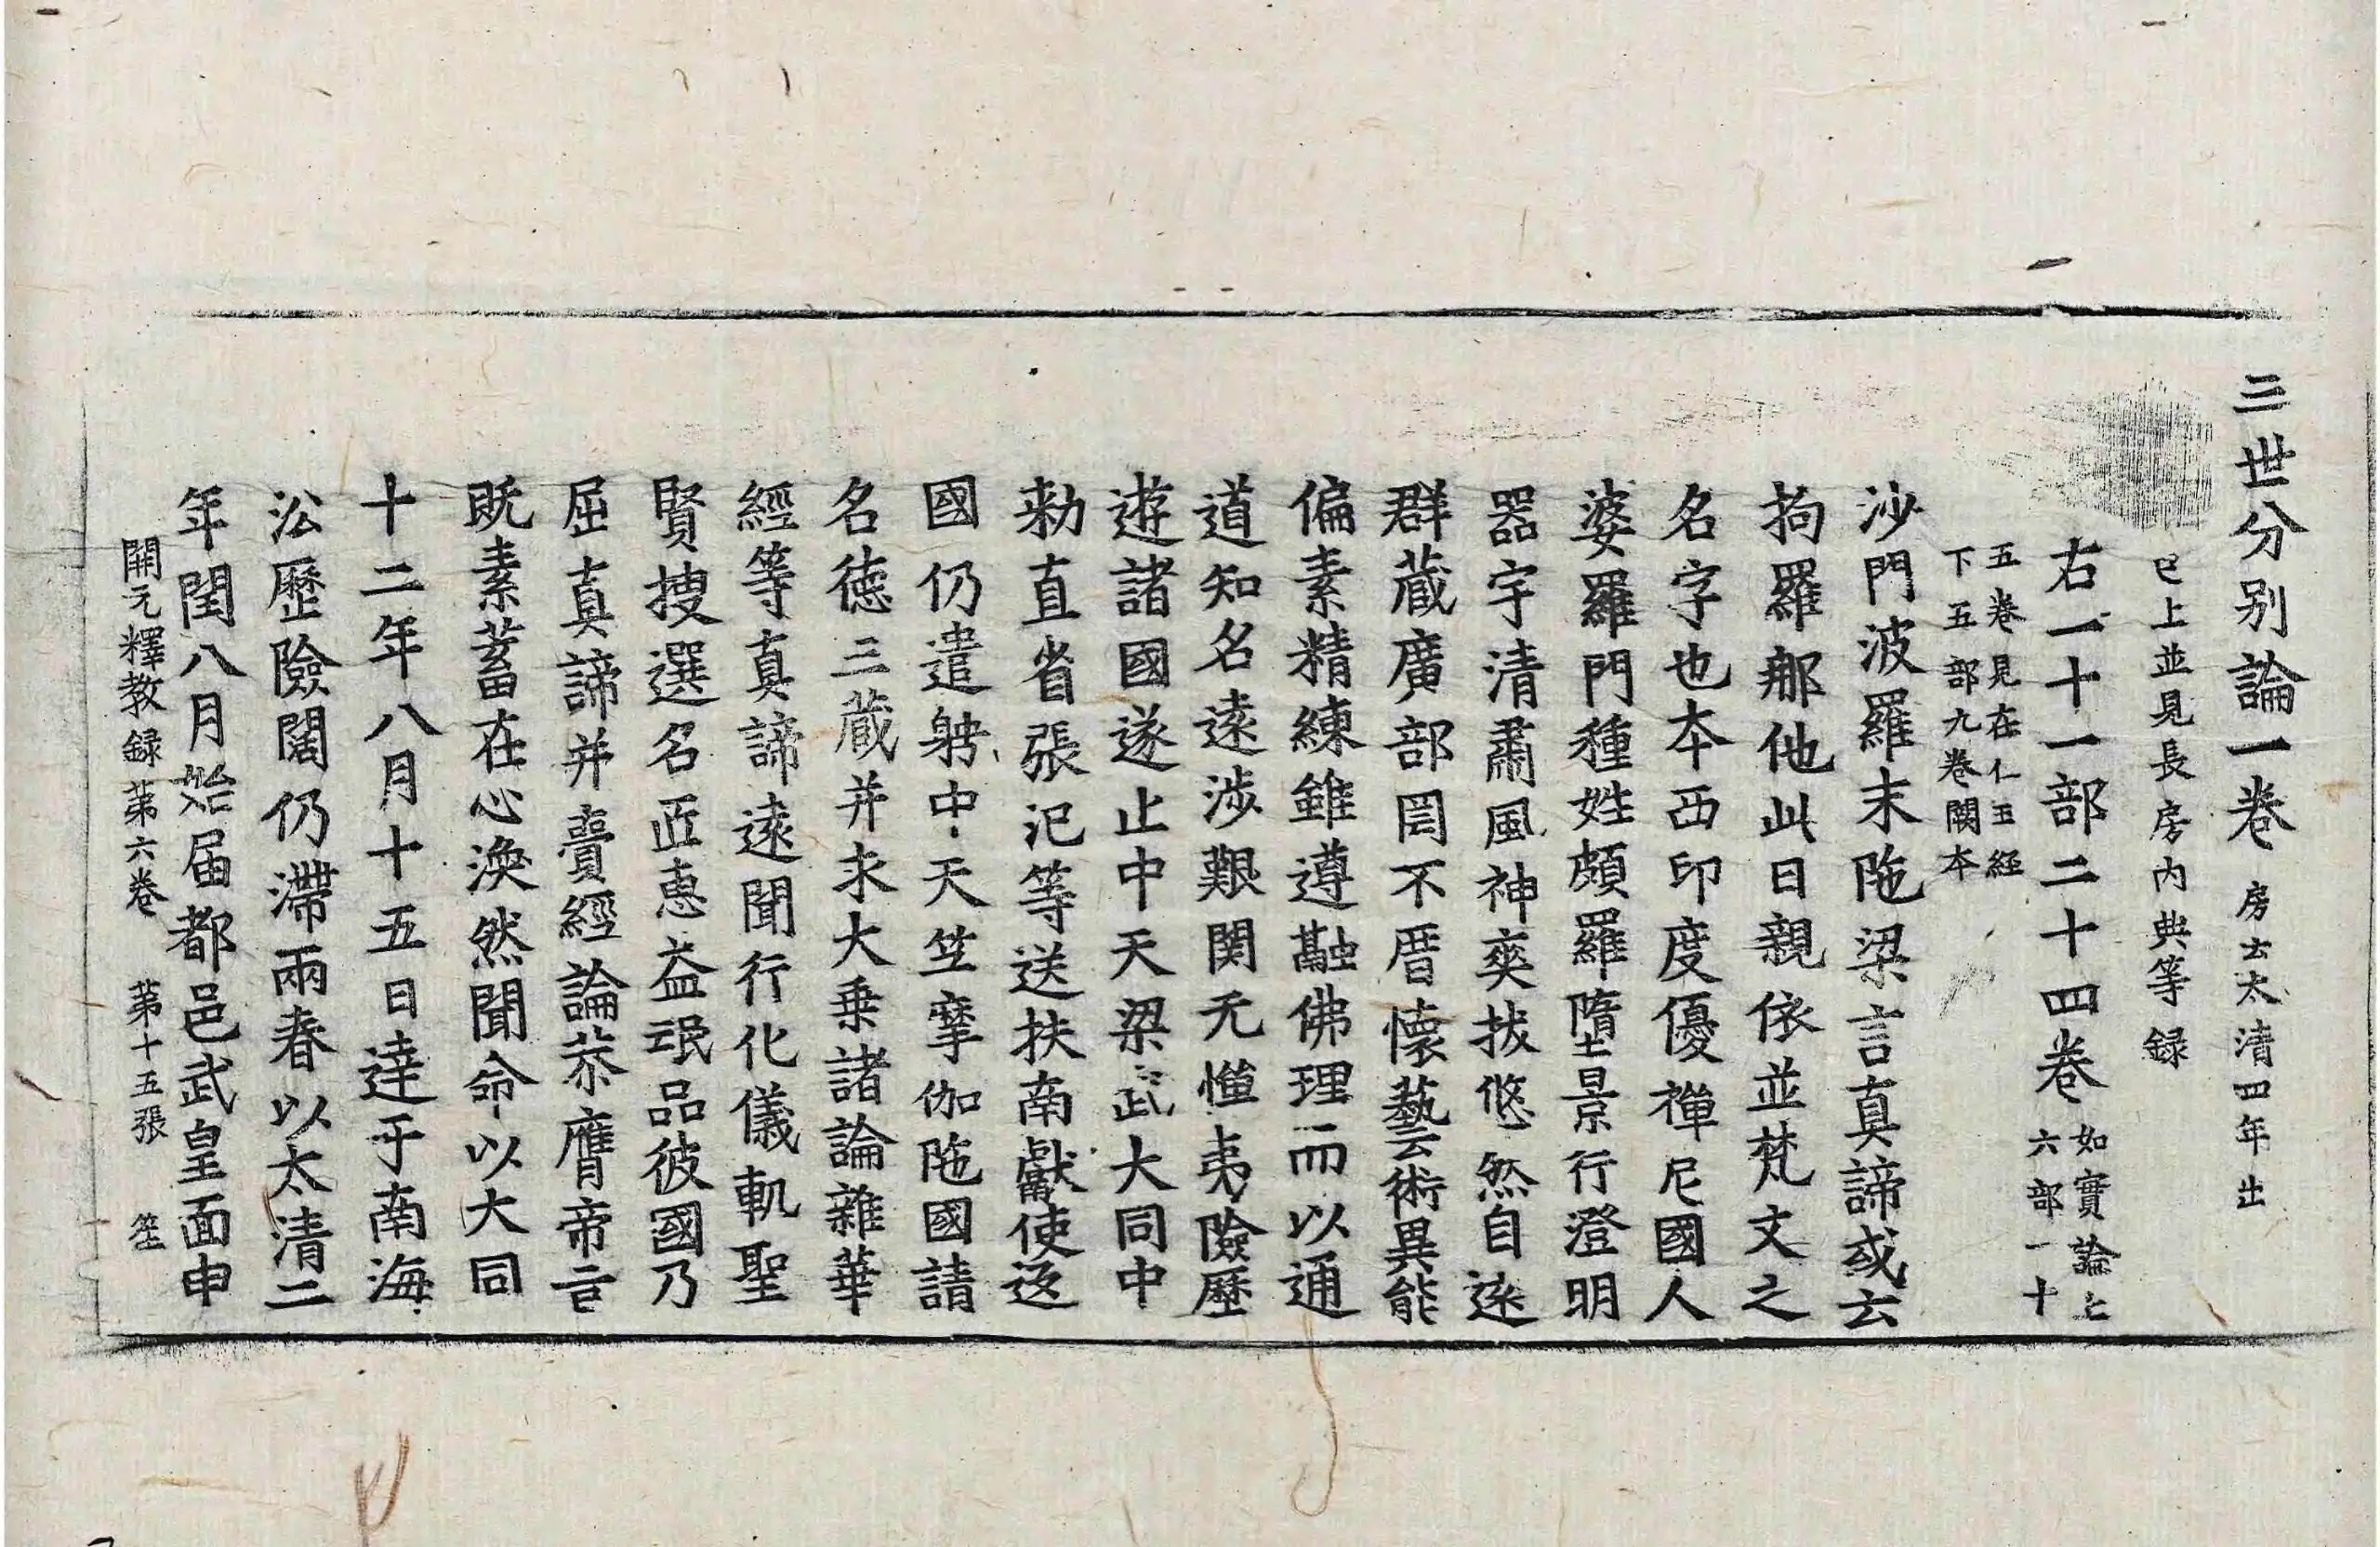 三世分別論一卷 房云太清四年出
已上並見長房內典等録
右一十一部二十四卷 如實論上
六部一十
五卷見在仁王經
下五部九卷闕本
沙門波羅末陁梁言真諦或云
拘羅那他此曰親依並梵文之
名字也本西印度優禪尼國人
婆羅門種姓頗羅墮景行澄明
器宇清肅風神爽拔悠然自遠
群藏廣部罔不厝懷藝術異能
偏素精練雖遵融佛理而以通
道知名遠涉艱関无憚夷險歷
遊諸國遂止中天梁武大同中
勑直省張汜等送扶南獻使返
國仍遣聘中天竺摩伽陁國請
名德三藏并求大乗諸論雜華
經等真諦遠聞行化儀軌聖
賢搜選名匠惠益氓品彼國乃
屈真諦并賫經論恭膺帝言
既素蓄在心渙然聞命以大同
十二年八月十五日達于南海
㳂歷險闊仍滯兩春以太清二
年閏八月始届都邑武皇面申
開元釋教録苐六卷 苐十五張 笙